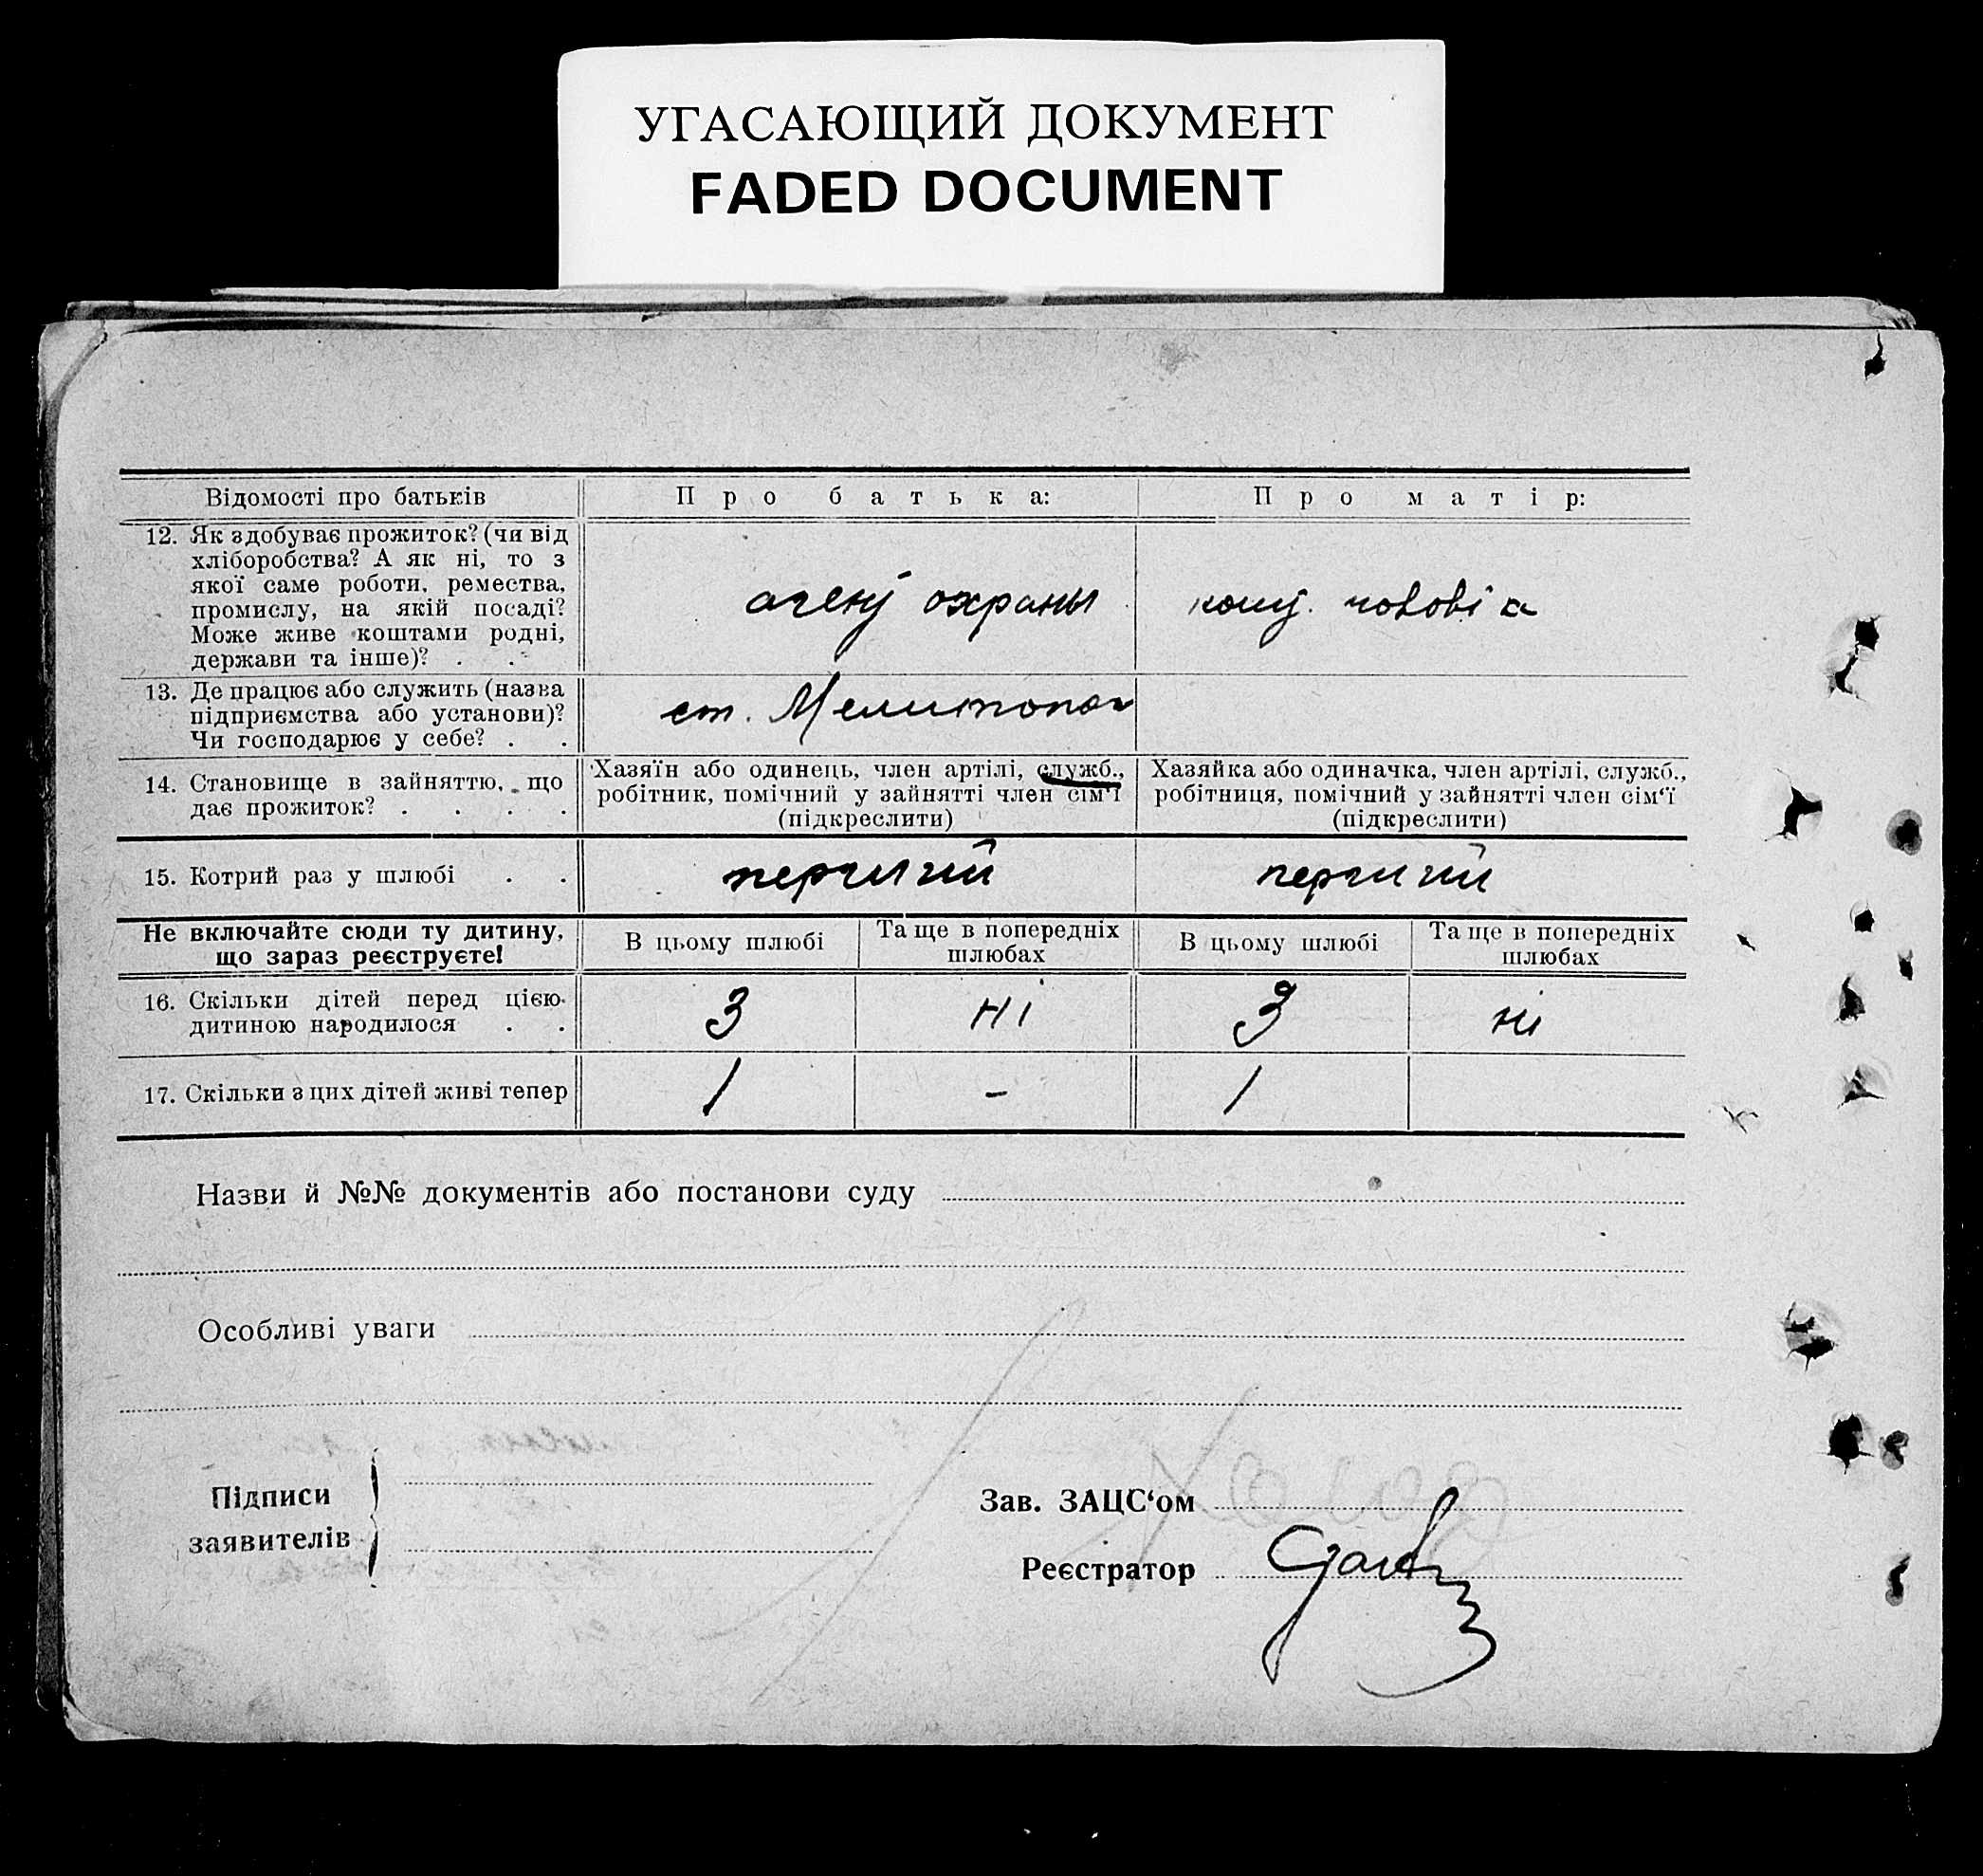 УГАСАЮЩИЙ ДОКУМЕНТ
FADED DOCUMENT
Відомості про батьків
Про батька:
Про матір:
12. Як здобуває прожиток? (чи від
хліборобства? А як ні, то з
якої саме роботи, ремества,
промислу, на якій посаді?
Може живе коштами родні,
держави та інше)? . .
агент охраны
кошт. чоловіка
13. Де працює або служить (назва
підприємства або установи)?
Чи господарює у себе? . .
ст. Мелитополь
14. Становище в зайняттю, що
дає прожиток? . . . .
Хазяїн або одинець, член артілі, служб.,
робітник, помічний у зайнятті член сім‘ї
(підкреслити)
Хазяйка або одиначка, член артілі, служб.,
робітниця, помічний у зайнятті член сім‘ї
(підкреслити)
15. Котрий раз у шлюбі . .
перший
перший
Не включайте сюди ту дитину,
що зараз реєструєте!
В цьому шлюбі
Та ще в попередніх
шлюбах
В цьому шлюбі
Та ще в попередніх
шлюбах
16. Скільки дітей перед цією
дитиною народилося . .
3
ні
3
ні
17. Скільки з цих дітей живі тепер
1
-
1
Назви й №№ документів або постанови суду
Особливі уваги
Підписи
заявителів
Зав. ЗАЦС‘ом
Реєстратор